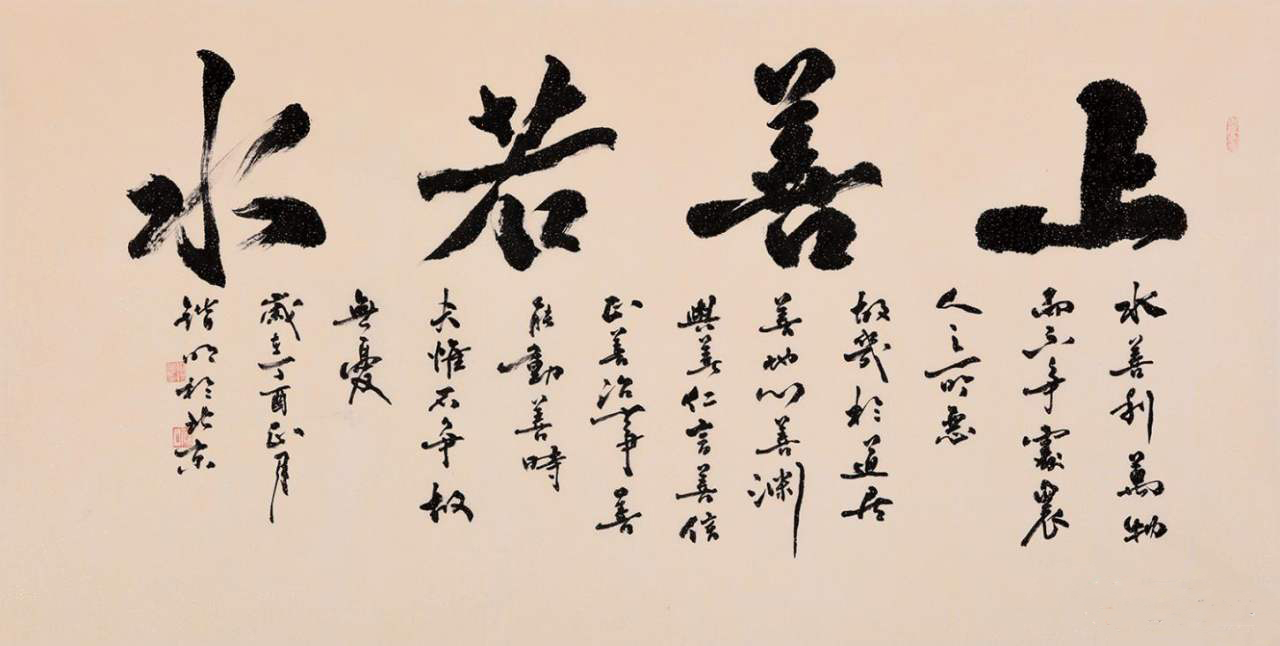 上善若水
水善利萬物
而不争處衆
人之所惡
故幾於道居
善地心善淵
與善仁言善信
正善治事善
能動善時
夫惟不争故
無憂
歲在丁酉正月
明於北京